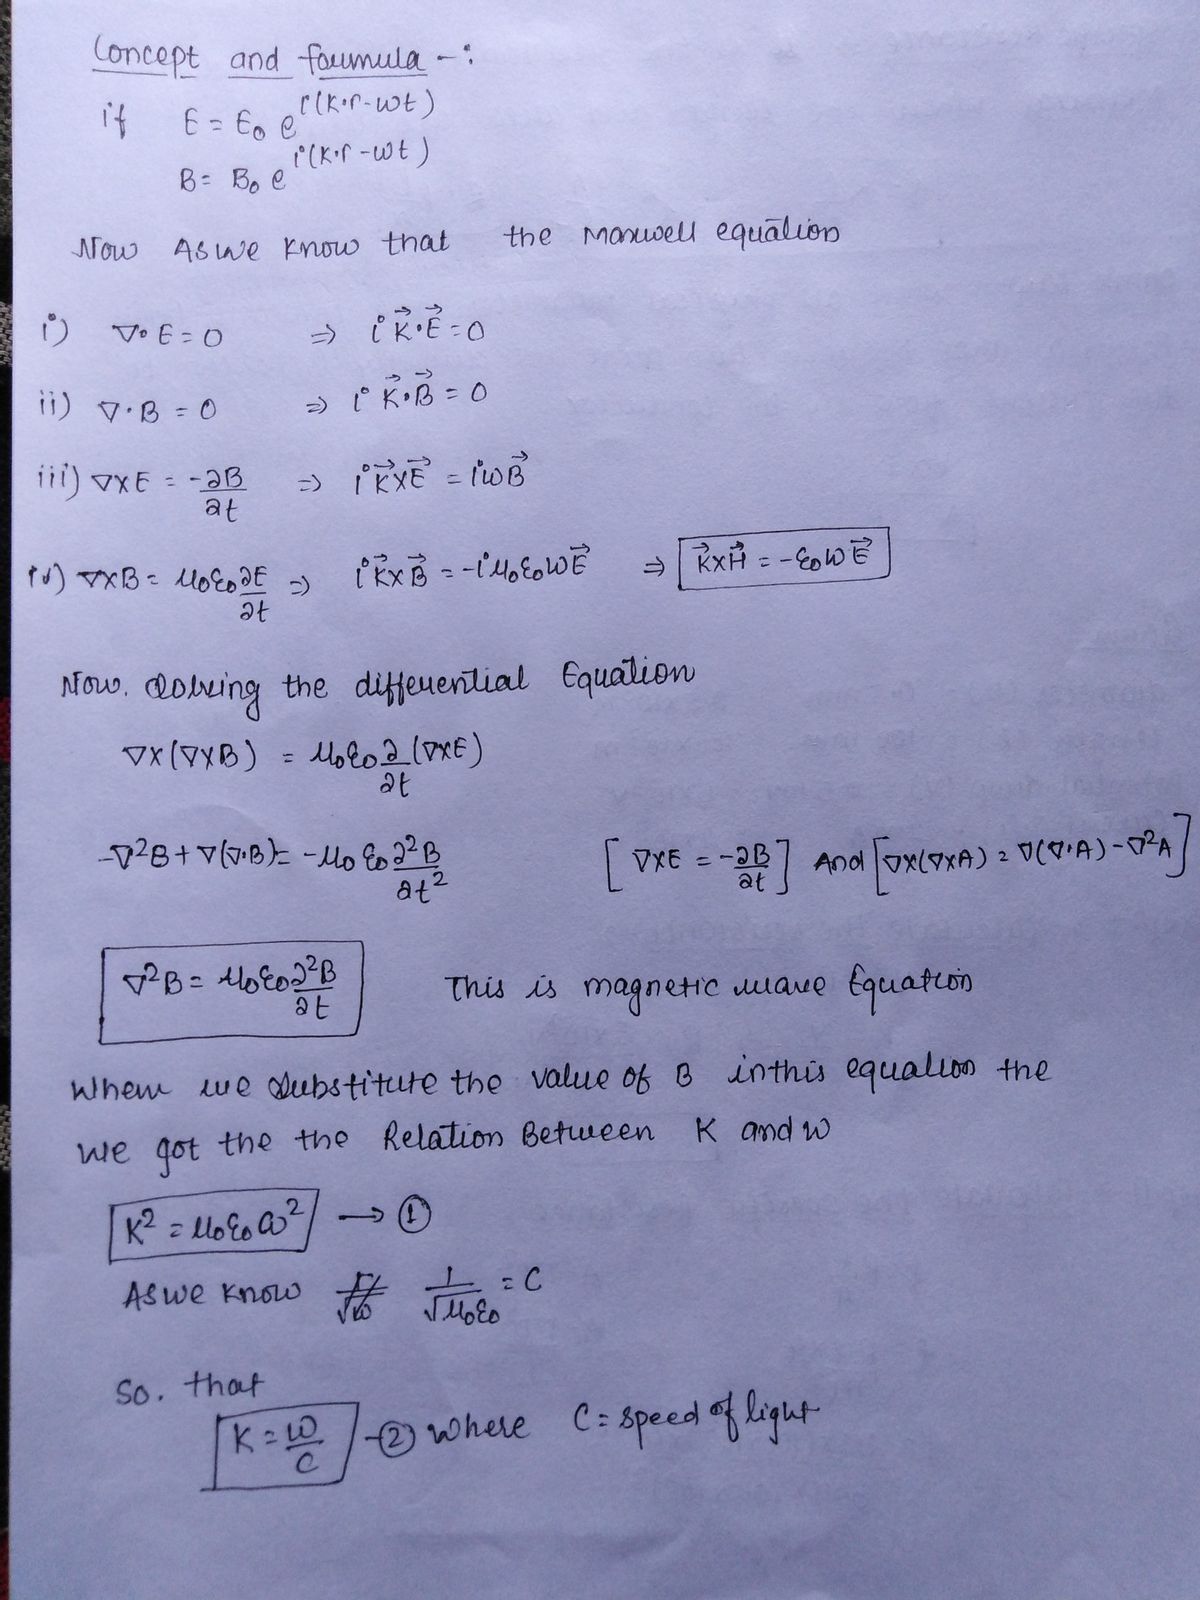 Concept and formula -:
if E = E₀ e^i(K·r-wt)
B = B₀ e^i(K·r-wt)
Now As we know that the Maxwell equation
i) ∇·E = 0 ⇒ i K⃗·E⃗ = 0
ii) ∇·B = 0 ⇒ i K⃗·B⃗ = 0
iii) ∇×E = -∂B/∂t ⇒ i K⃗×E⃗ = iωB⃗
iv) ∇×B = μ₀ε₀∂E/∂t ⇒ i K⃗×B⃗ = -iμ₀ε₀ωE⃗ ⇒ K⃗×H⃗ = -ε₀ωE⃗
Now. Solving the differential Equation
∇×(∇×B) = μ₀ε₀∂/∂t (∇×E)
-∇²B + ∇(∇·B) = -μ₀ε₀∂²B/∂t² [∇×E = -∂B/∂t] And [∇×(∇×A) = ∇(∇·A) - ∇²A]
∇²B = μ₀ε₀∂²B/∂t This is magnetic wave Equation
When we substitute the value of B in this equation the
we got the the Relation Between K and w
K² = μ₀ε₀ω² → ①
As we know 1/√μ₀ε₀ = C
So. that
K = w/c -② where C = speed of light